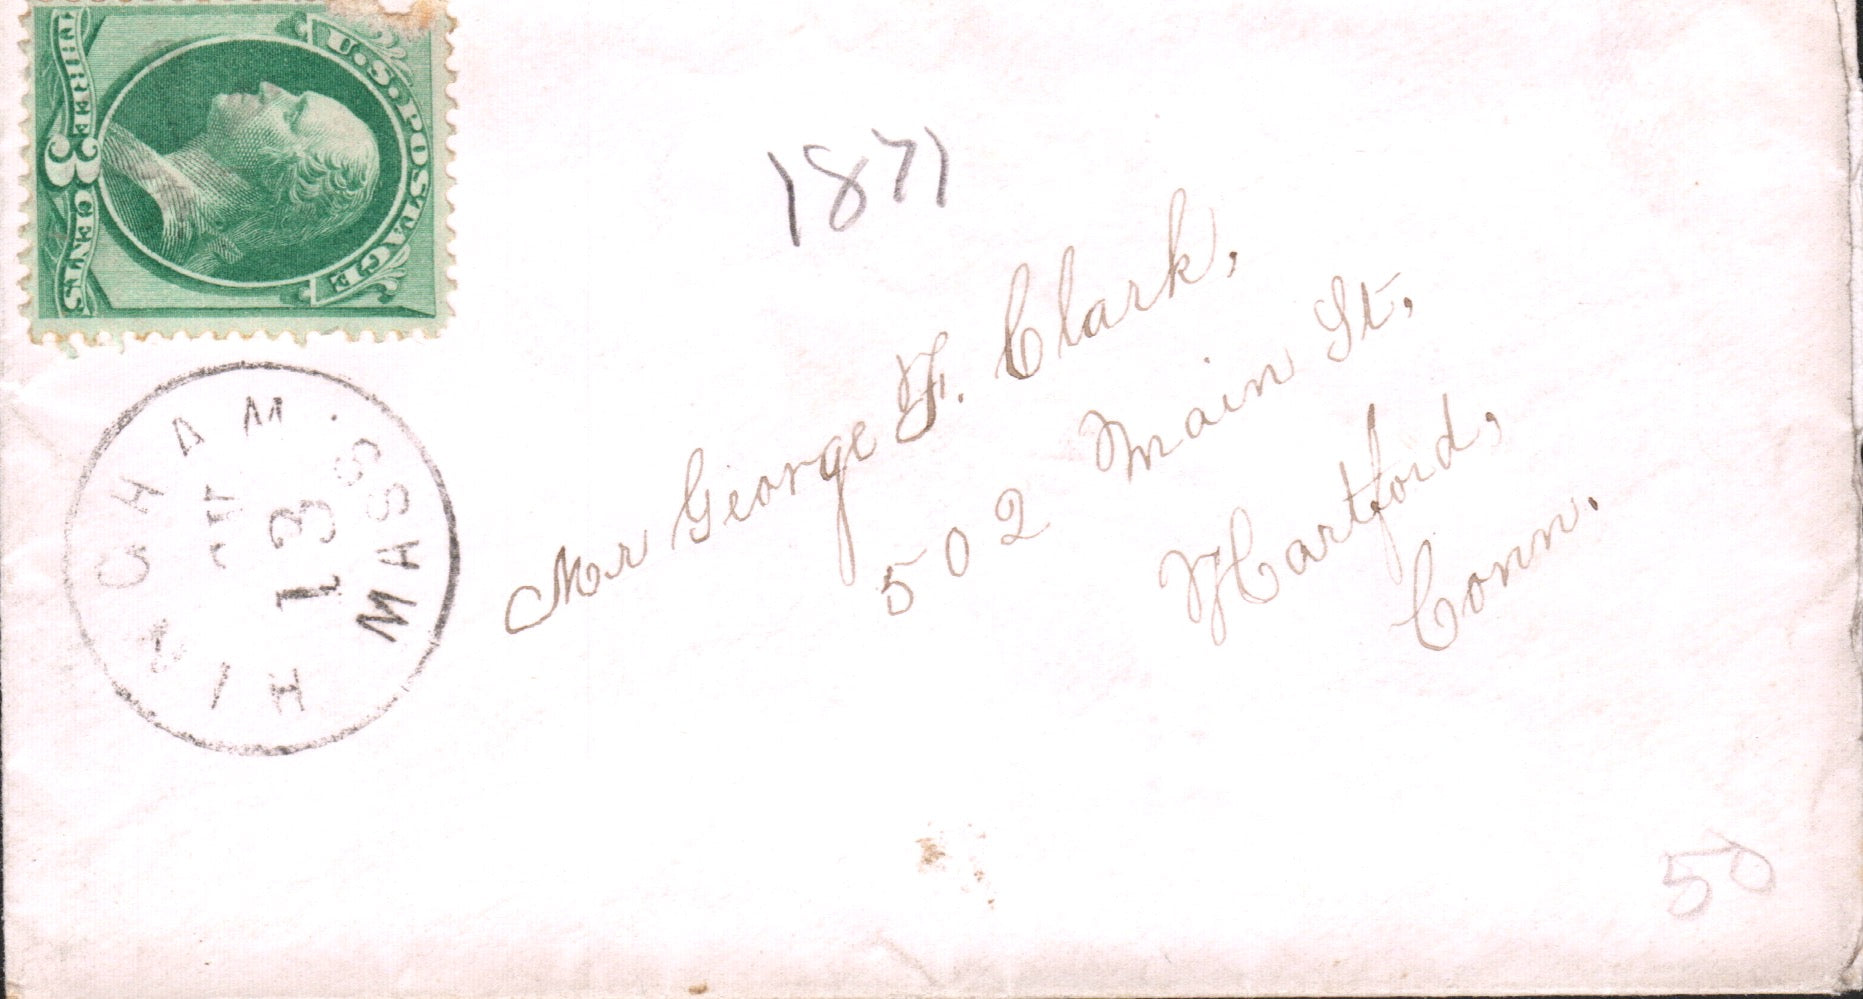 U.S. POSTAGE
THREE 3 CENTS
1871
HINGHAM. MASS.
13
Mr George F. Clark,
502 Main St.
Hartford,
Conn.
50